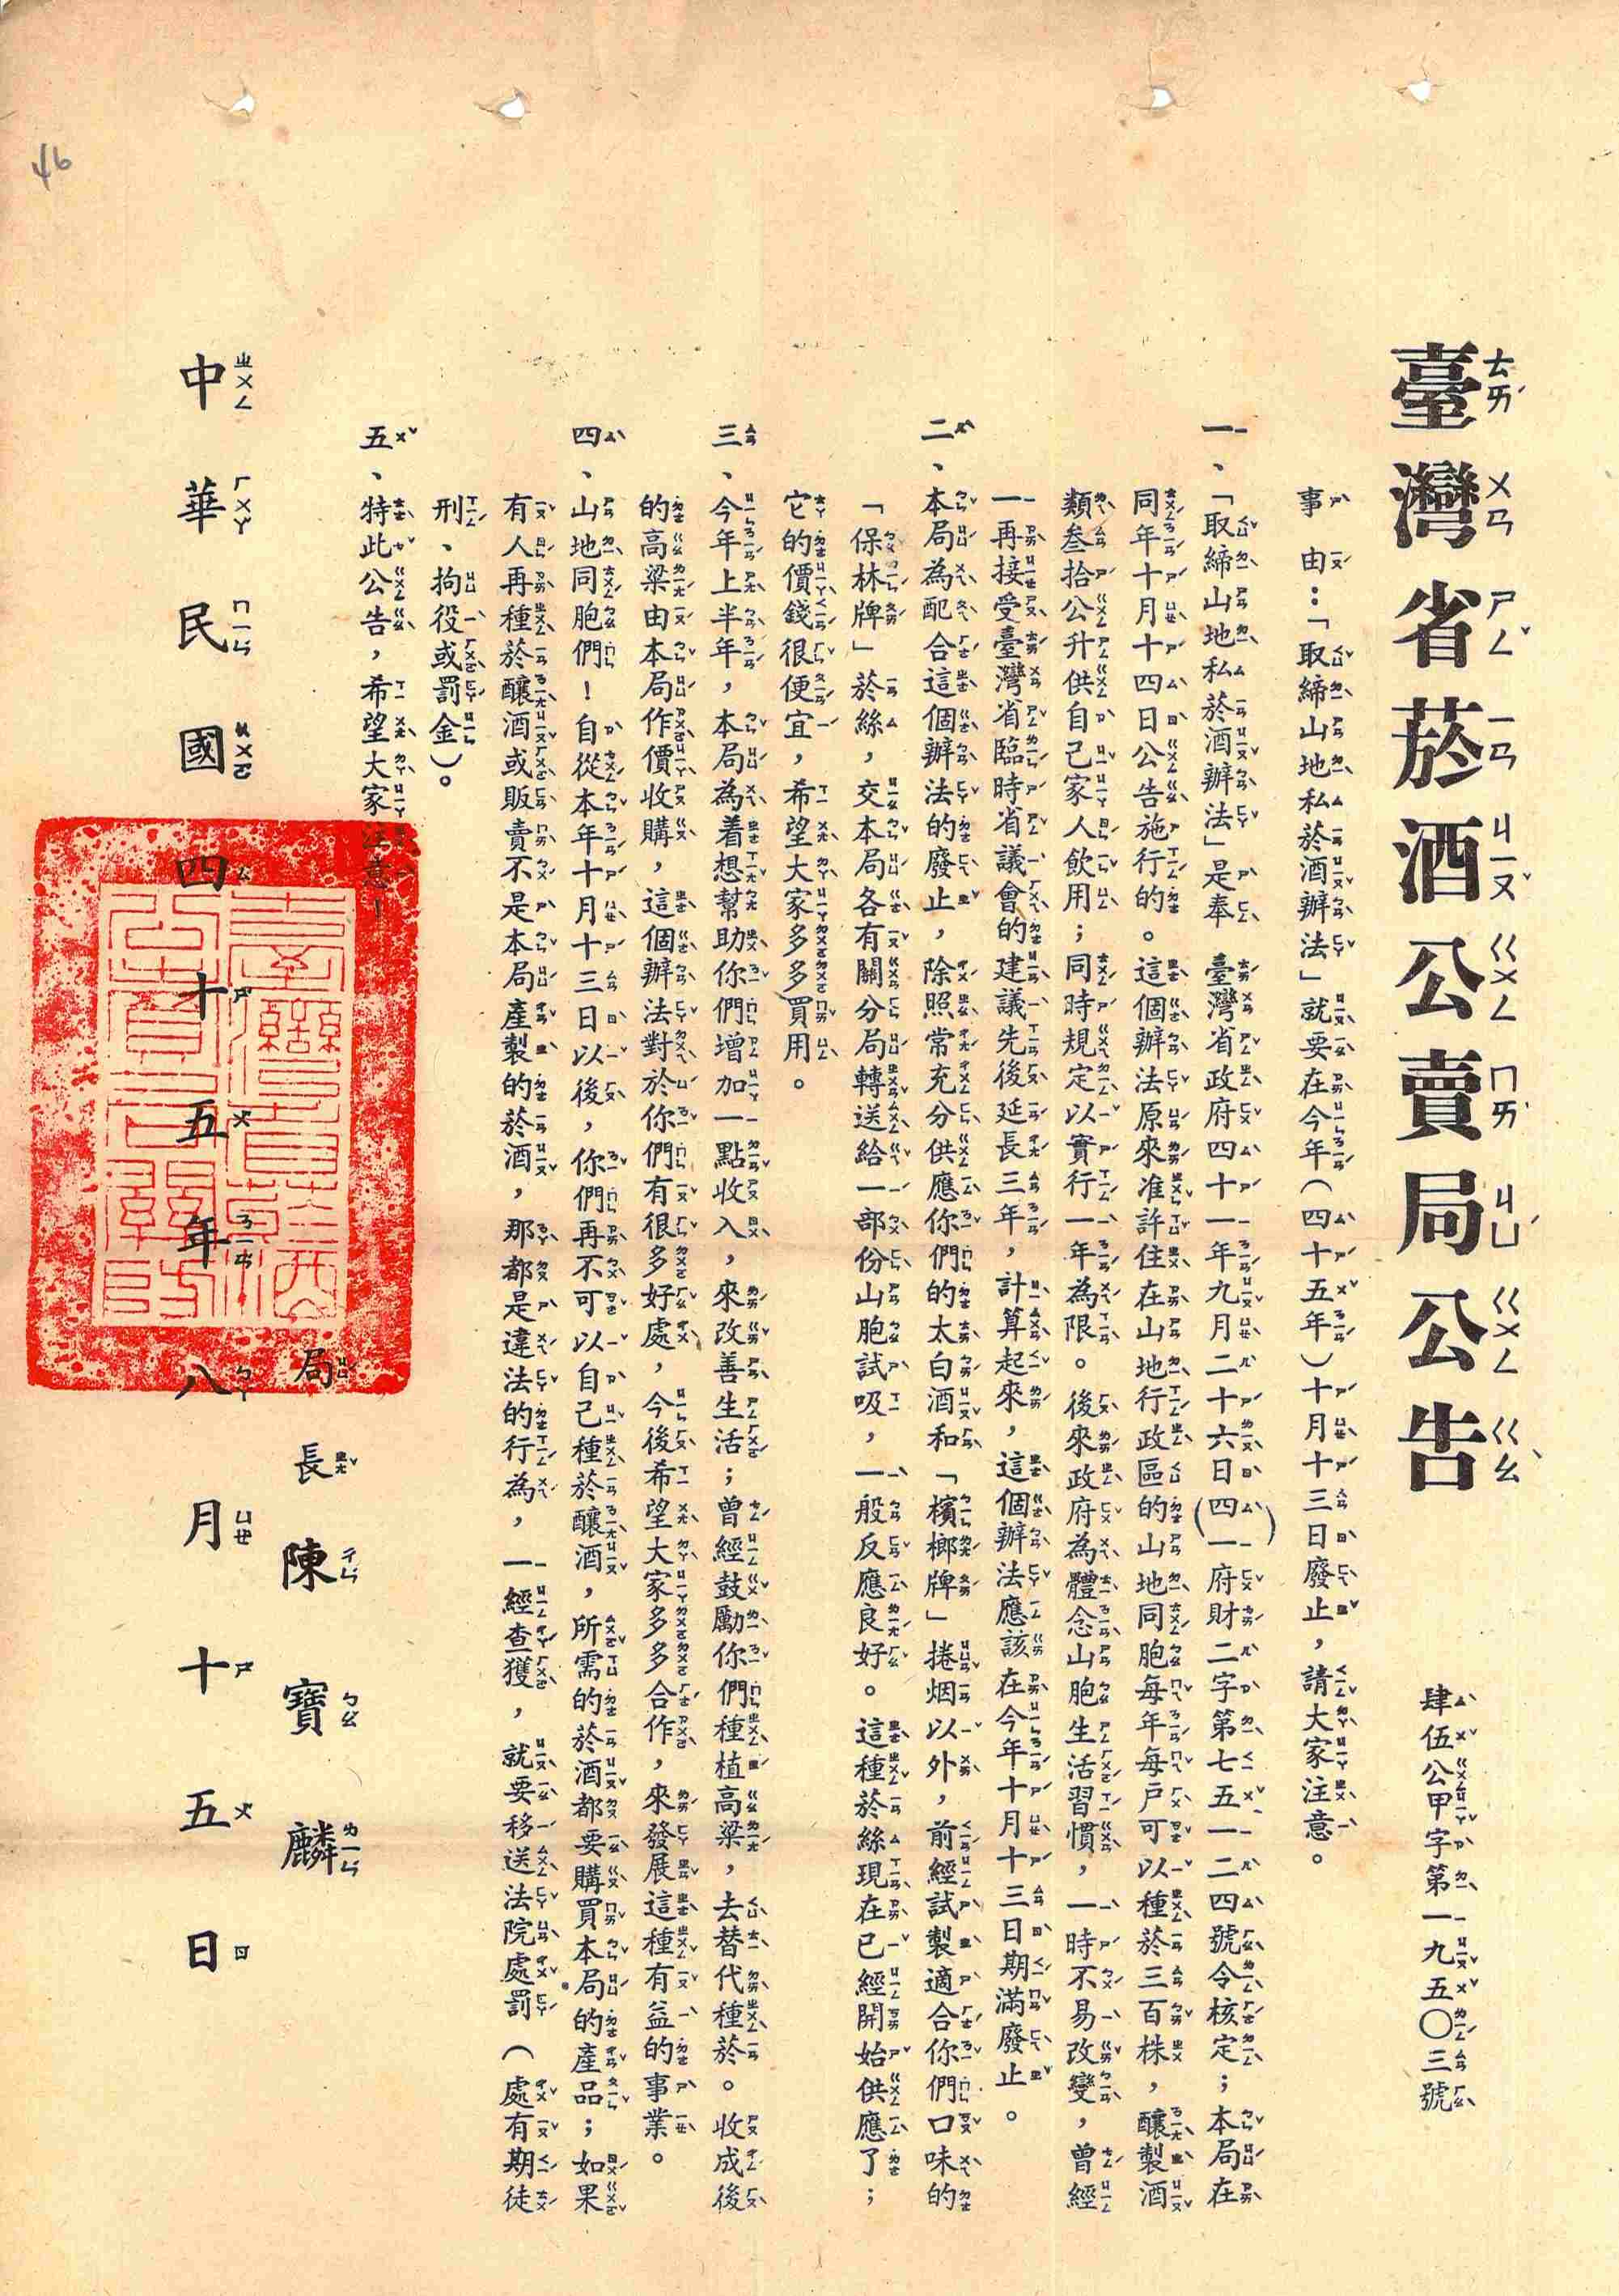 臺灣省菸酒公賣局公告
肆伍公甲字第一九五〇三號
事由：「取締山地私菸酒辦法」就要在今年（四十五年）十月十三日廢止，請大家注意。
一、「取締山地私菸酒辦法」是奉　臺灣省政府四十一年九月二十六日(四一)府財二字第七五一二四號令核定；本局在
同年十月十四日公告施行的。這個辦法原來准許住在山地行政區的山地同胞每年每戶可以種菸三百株，釀製酒
類叁拾公升供自己家人飲用；同時規定以實行一年為限。後來政府為體念山胞生活習慣，一時不易改變，曾經
一再接受臺灣省臨時省議會的建議先後延長三年，計算起來，這個辦法應該在今年十月十三日期滿廢止。
二、本局為配合這個辦法的廢止，除照常充分供應你們的太白酒和「檳榔牌」捲烟以外，前經試製適合你們口味的
「保林牌」菸絲，交本局各有關分局轉送給一部份山胞試吸，一般反應良好。這種菸絲現在已經開始供應了；
它的價錢很便宜，希望大家多多買用。
三、今年上半年，本局為着想幫助你們增加一點收入，來改善生活；曾經鼓勵你們種植高粱，去替代種菸。收成後
的高粱由本局作價收購，這個辦法對於你們有很多好處，今後希望大家多多合作，來發展這種有益的事業。
四、山地同胞們！自從本年十月十三日以後，你們再不可以自己種菸釀酒，所需的菸酒都要購買本局的產品；如果
有人再種菸釀酒或販賣不是本局產製的菸酒，那都是違法的行為，一經查獲，就要移送法院處罰（處有期徒
刑、拘役或罰金）。
五、特此公告，希望大家注意！
局長陳寶麟
中華民國四十五年八月十五日
46